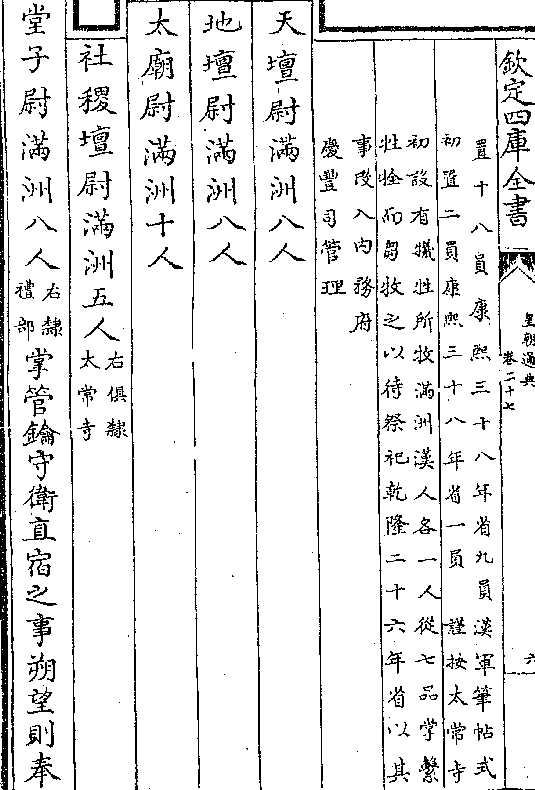 欽定四庫全書
皇朝通典
卷二十七
六
置十八員康熙三十八年省九員漢軍筆帖式
初置二員康熙三十八年省一員 謹按太常寺
初設有犧牲所牧滿洲漢人各一人從七品掌繫
牲牷而芻牧之以待祭祀乾隆二十六年省以其
事改入内務府
慶豐司管理
天壇尉滿洲八人
地壇尉滿洲八人
太廟尉滿洲十人
社稷壇尉滿洲五人右俱隸
太常寺
堂子尉滿洲八人右隸
禮部掌管鑰守衛直宿之事朔望則奉